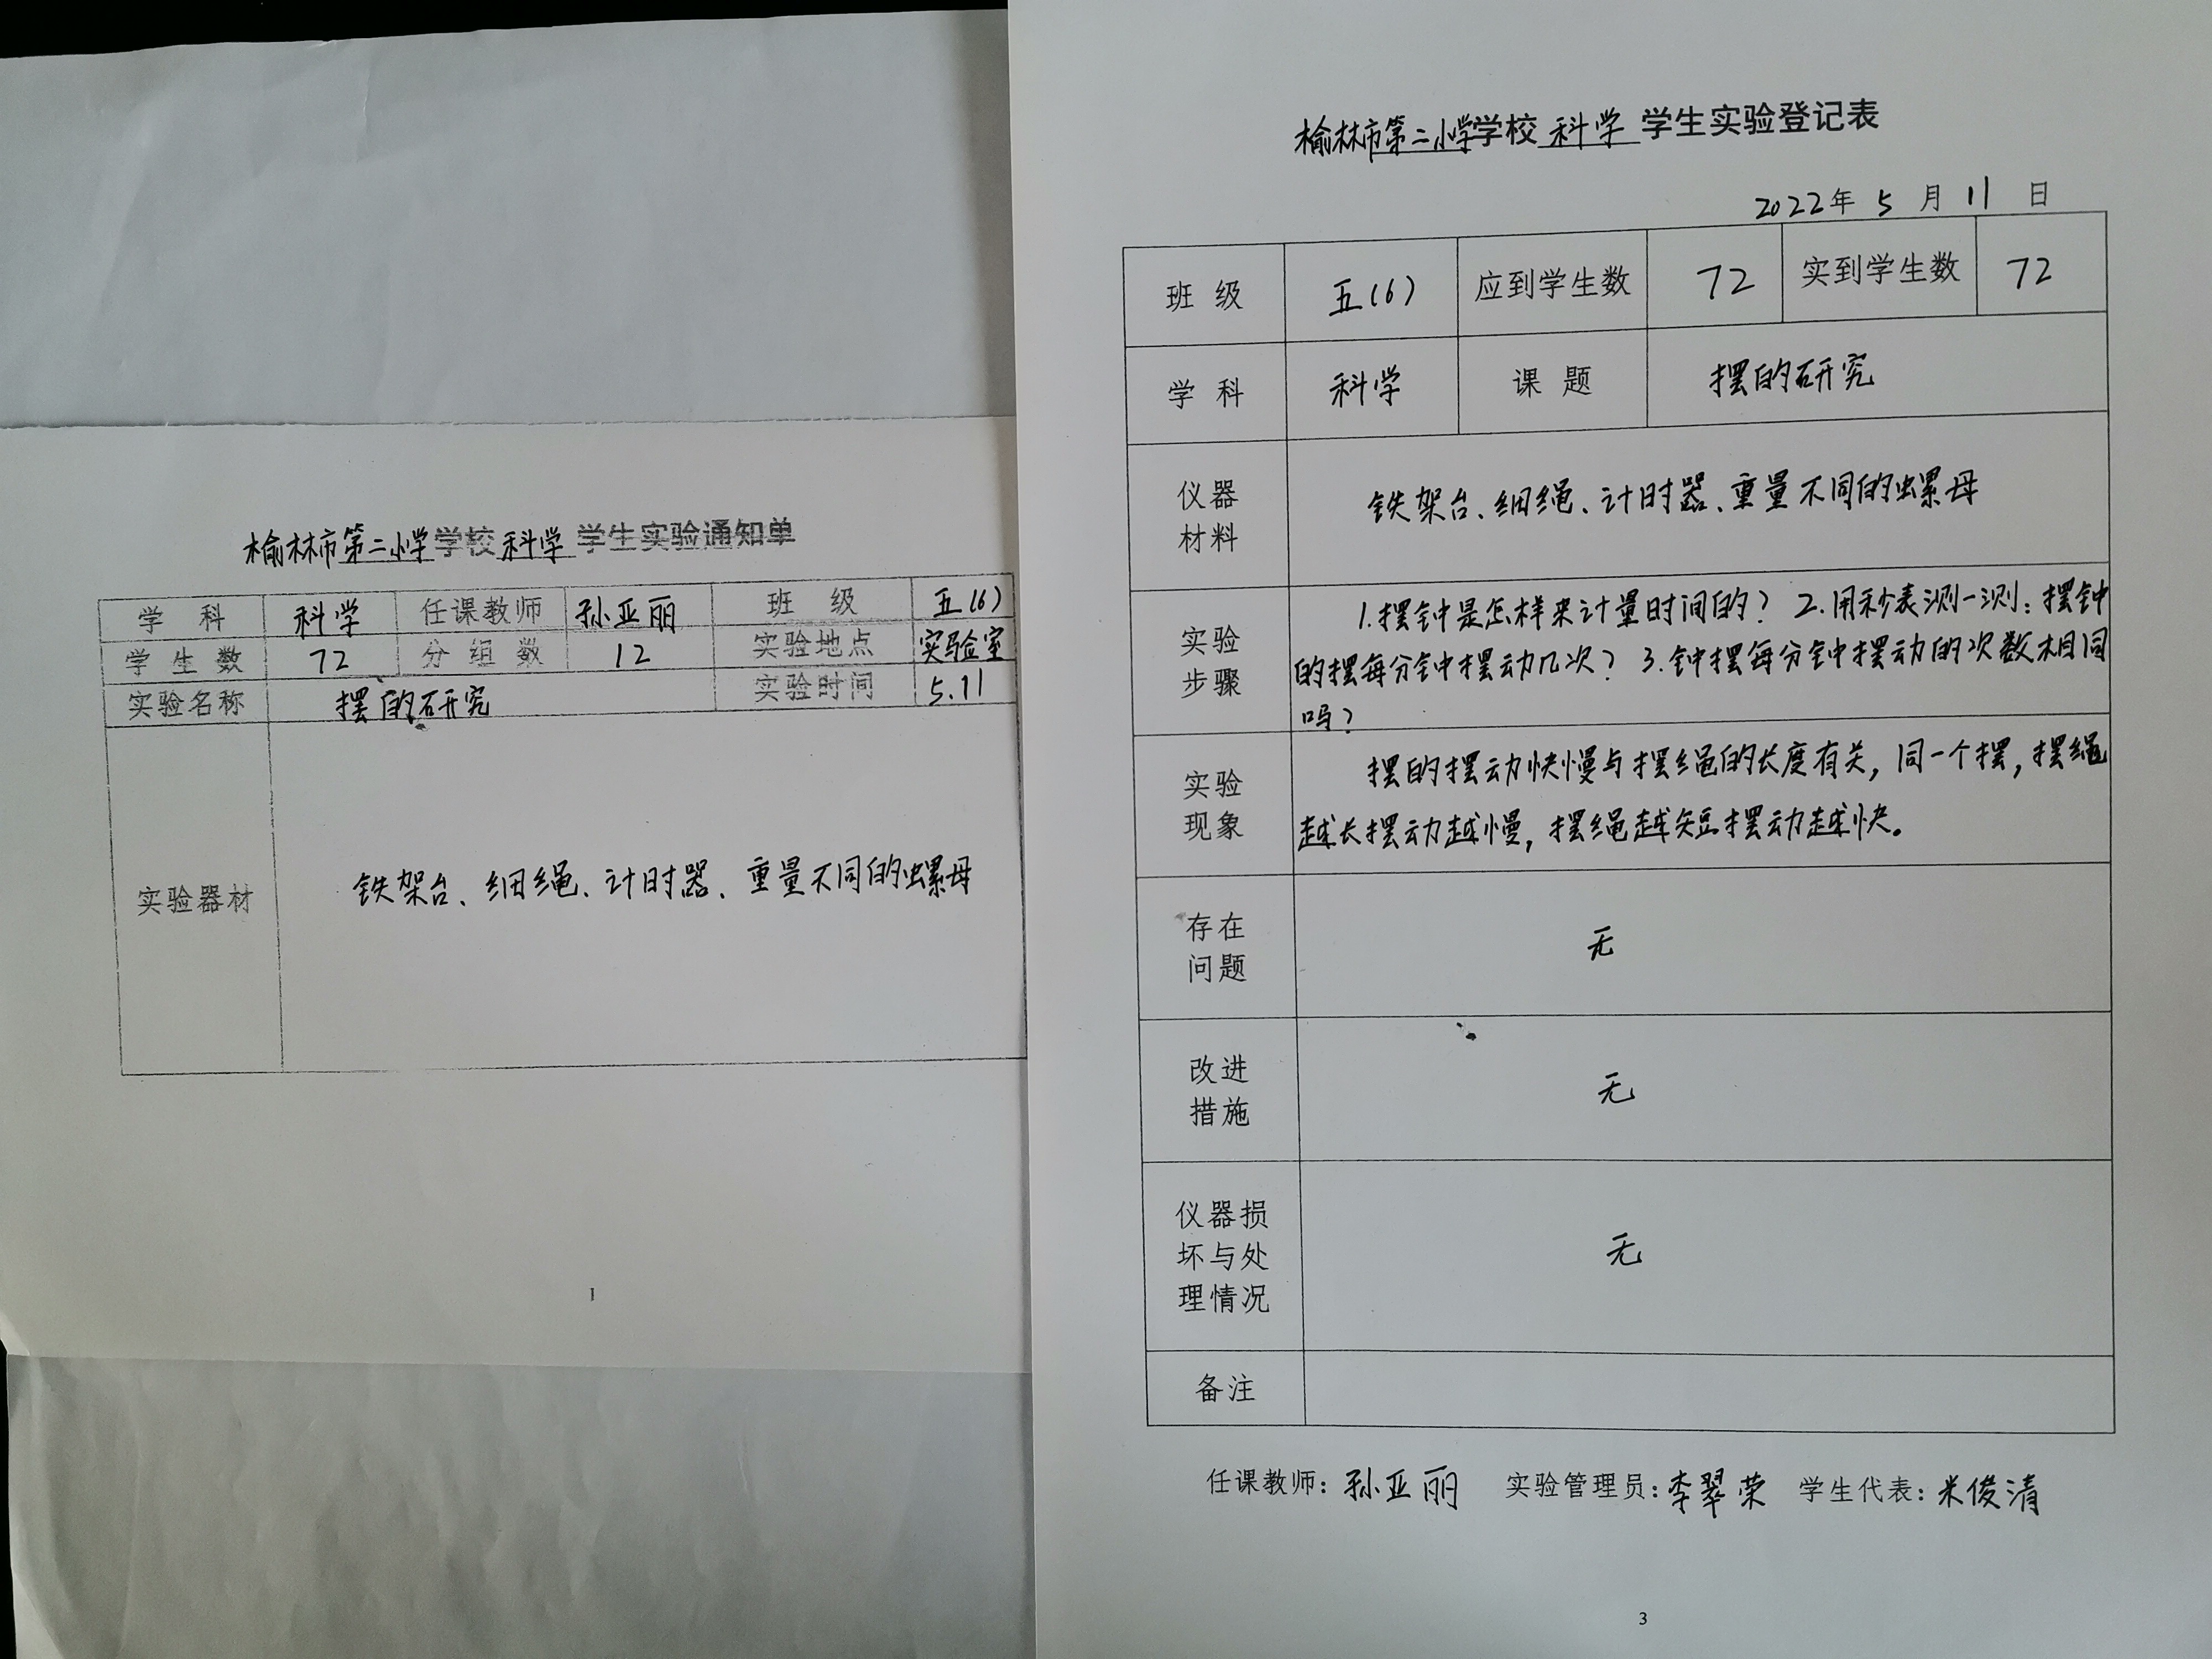 榆林市第二小学学校 科学 学生实验通知单
学 科 科学 任课教师 孙亚丽 班 级 五(6)
学 生 数 72 分 组 数 12 实验地点 实验室
实验名称 摆的研究 实验时间 5.11
实验器材 铁架台、细绳、计时器、重量不同的螺母
1
榆林市第二小学学校 科学 学生实验登记表
2022年 5 月 11 日
班 级 五(6) 应到学生数 72 实到学生数 72
学 科 科学 课 题 摆的研究
仪器
材料
铁架台、细绳、计时器、重量不同的螺母
实验
步骤
1.摆钟是怎样来计量时间的？ 2.用秒表测一测：摆钟
的摆每分钟摆动几次？ 3.钟摆每分钟摆动的次数相同
吗？
实验
现象
摆的摆动快慢与摆绳的长度有关，同一个摆，摆绳
越长摆动越慢，摆绳越短摆动越快。
存在
问题
无
改进
措施
无
仪器损
坏与处
理情况
无
备注
任课教师：孙亚丽 实验管理员：李翠荣 学生代表：米俊清
3